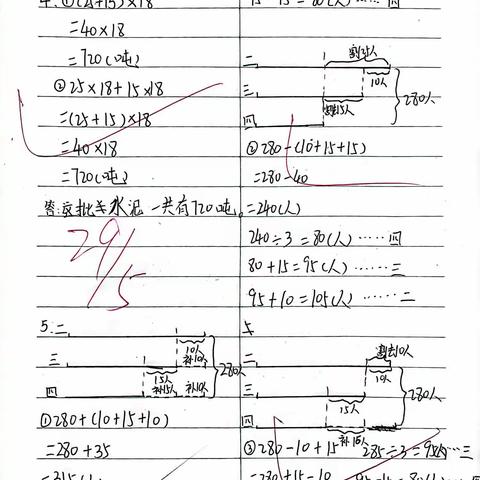 4. ①(25+15)×18
=40×18
=720(吨)
②25×18+15×18
=(25+15)×18
=40×18
=720(吨)
答:这批羊水泥一共有720吨。
29/5
5. 二
10人
补10人
三
15人
补15人
补10人
四
280人
①280+(10+15+10)
=280+35
=315(人)
95-15=80(人)……四
二
割25人
10人
三
割15人
四
280人
②280-(10+15+15)
=280-40
=240(人)
240÷3=80(人)……四
80+15=95(人)……三
95+10=105(人)……二
5
割去10人
二
10人
三
15人
四
补15人
280人
③280-10+15
285÷3=95人…三
=280+15-10
95-15=80(人)…四